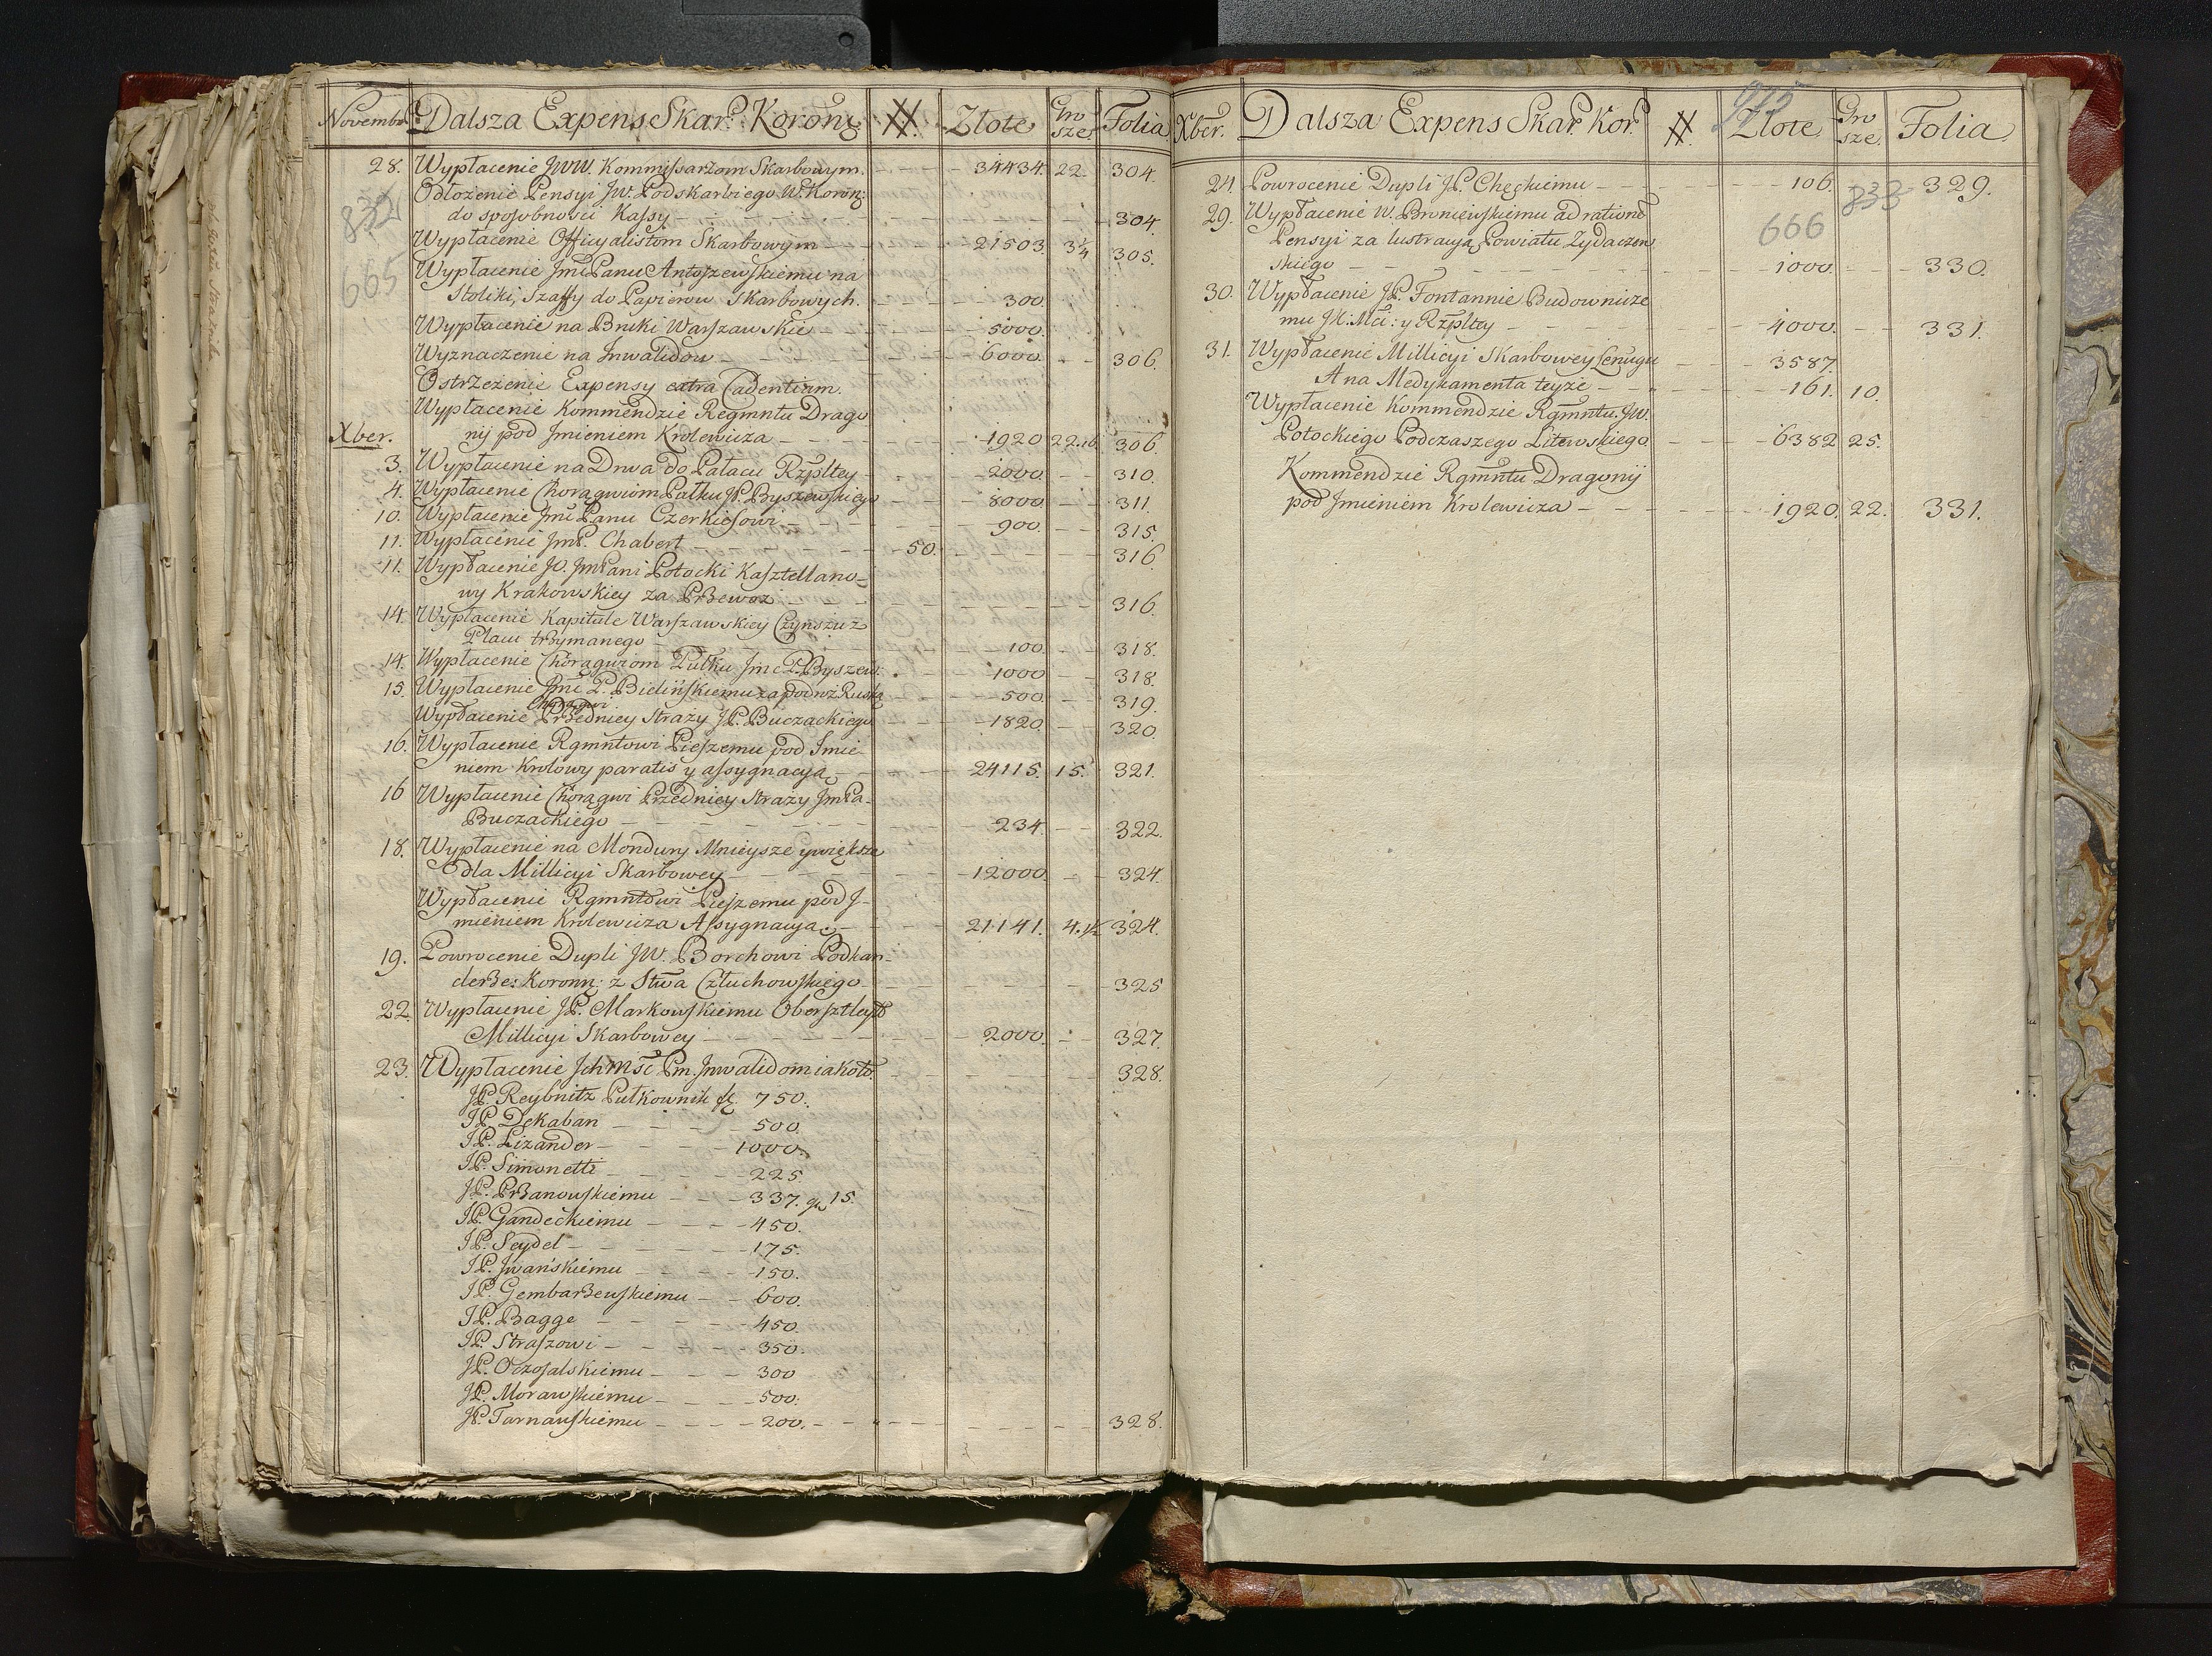 Novembr. Dalsza Expens Skar: Koronn: # Złote Gro sze Folia
28. Wypłacenie JWW. Kommissarzom Skarbowym. 34434. 22. 304.
Odłożenie Pensyi JW. Podskarbiego W. Koronn:
832
do sposobności Kassy 304.
Wypłacenie Officyalistom Skarbowym 21503. 3¼ 305.
665
Wypłacenie Jmć Panu Antoszewskiemu na
Stoliki, Szaffy do Papierow Skarbowych. 300
Wypłacenie na Bruki Warszawskie 5000.
Wyznaczenie na Inwalidow 6000. 306.
Ostrzeżenie Expensy extra Cadentiam.
Wypłacenie Kommendzie Regmntu Drago
Xber. nij pod Jmieniem Krolewicza 1920 22.16 306.
3. Wypłacenie na Drwa do Pałacu Rzpltey 2000. 310.
4. Wypłacenie Chorągwiom Pułku JP. Byszewskiego 8000. 311.
10. Wypłacenie Jmć Panu Czerkiesowi 900. 315.
11. Wypłacenie JmP. Chabert 50. 316.
11. Wypłacenie JO. JmPani Potocki Kasztellano-
wy Krakowskiey za Przewoz 316.
14. Wypłacenie Kapitule Warszawskiey Czynszu z
Placu trzymanego 100. 318.
14. Wypłacenie Chorągwiom Pułku Jmc P. Byszew: 1000 318.
15. Wypłacenie Jmć P. Bielińskiemu za podroż Ruską 500. 319.
Chorągwi
Wypłacenie Przedniey Straży JP. Buczackiego 1820. 320.
16. Wypłacenie Rgmntowi Pieszemu pod Jmie
niem Krolowy paratis y assygnacyą 24115. 15. 321.
16 Wypłacenie Chorągwi Przedniey Straży JmPa-
Buczackiego 234. 322.
18. Wypłacenie na Mondury Mnieysze y większe
dla Millicyi Skarbowey 12000. 324.
Wypłacenie Rgmntowi Pieszemu pod J-
mieniem Krolewicza Assygnacyą 21141. 4.½ 324.
19. Powrocenie Dupli JW. Borchowi Podkan-
clerze: Koronn: z Stwa Człuchowskiego 325
22. Wypłacenie JP. Markowskiemu Obersztleyt
Millicyi Skarbowey 2000. 327.
23. Wypłacenie Jchmść Pm. Jnwalidom iako to. 328.
JP. Reybnitz Pułkownik fl. 750.
JP. Dekaban 500.
JP. Lizander 1000.
JP. Simonetti 225.
JP. Przanowskiemu 337. gr 15.
JP. Gandeckiemu 450.
JP. Seydel 175.
JP. Jwańskiemu 150.
JP. Gembarzewskiemu 600.
JP. Bagge 450.
JP. Straszowi 350.
JP. Oczosalskiemu 300
JP. Morawskiemu 500.
JP. Tarnawskiemu 200. 328.
Xber. Dalsza Expens Skar. Kor. # Złote Gro sze. Folia.
24. Powrocenie Dupli JP. Chęckiemu 106. 329.
833
29. Wypłacenie W. Broniewskiemu ad rationē
666
Pensyi za lustracyą Powiatu Zydaczew
skiego 1000. 330.
30. Wypłacenie JP. Fontannie Budownicze
mu JK: Mci: y Rzpltey 4000. 331.
31. Wypłacenie Millicyi Skarbowey Lenugu 3587.
A na Medykamenta teyże 161. 10.
Wypłacenie Kommendzie Rgmntu. JW.
Potockiego Podczaszego Litewskiego 6382 25.
Kommendzie Rgmntu Dragonij
pod Jmieniem Krolewicza 1920. 22. 331.